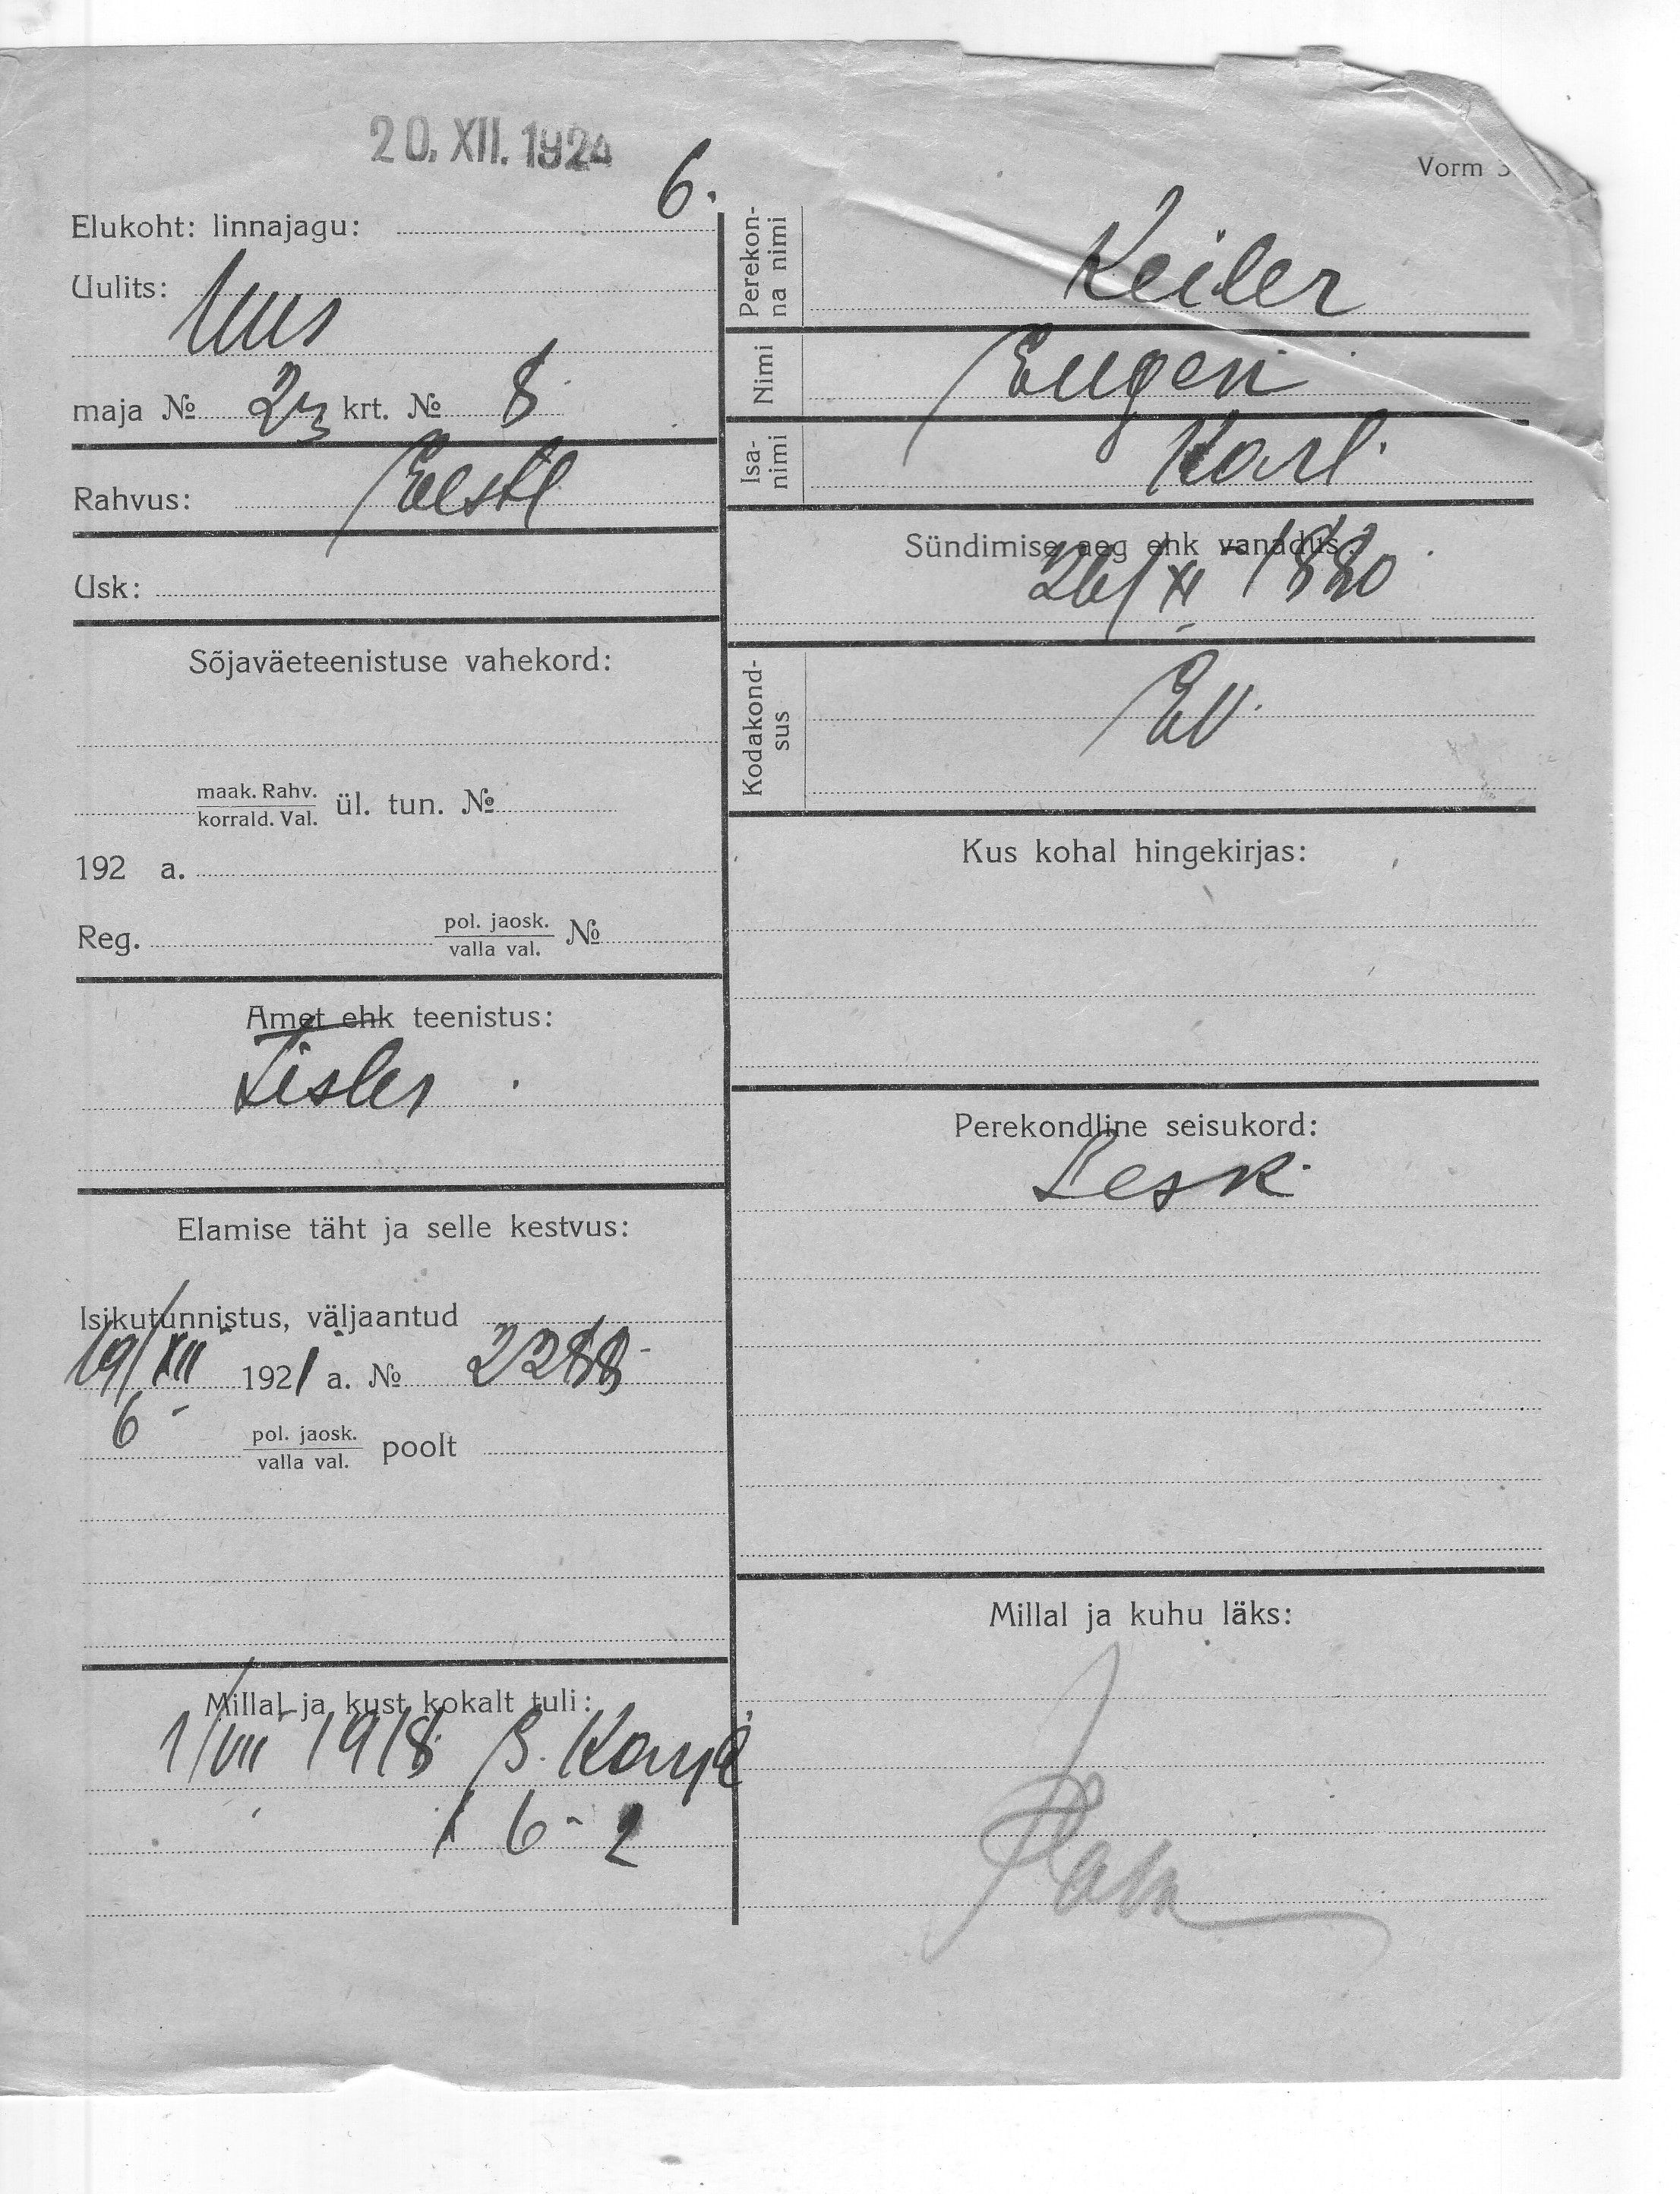 20. XII. 1924
Vorm 3
6.
Elukoht: linnajagu:
Uulits: Uus
maja № 23 krt. № 8
Rahvus: Eesti
Usk:
Sõjaväeteenistuse vahekord:
maak. Rahv.
korrald. Val. ül. tun. №
192 a.
Reg. pol. jaosk.
valla val. №
Amet ehk teenistus:
Tisler
Elamise täht ja selle kestvus:
Isikutunnistus, väljaantud
19/XII 1921 a. № 2288
6 pol. jaosk.
valla val. poolt
Millal ja kust kokalt tuli:
1/VII 1918 S. Karja
6-2
Perekon-
na nimi Keiler
Nimi Eugen
Isa-
nimi Karl
Sündimise aeg ehk vanadus:
26/XI 1880
Kodakond-
sus EV.
Kus kohal hingekirjas:
Perekondline seisukord:
Lesk
Millal ja kuhu läks: